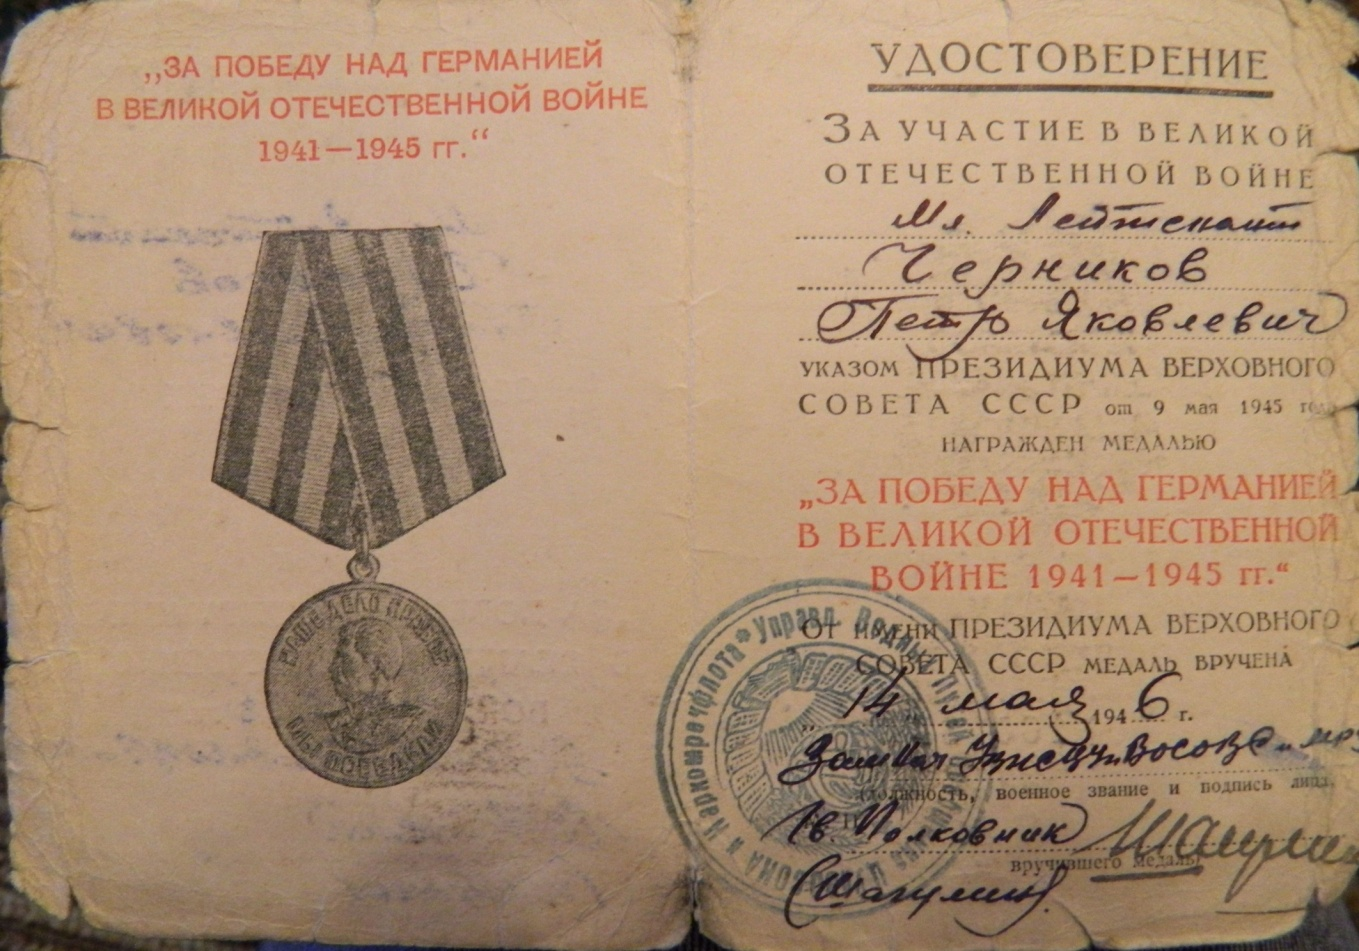 „ЗА ПОБЕДУ НАД ГЕРМАНИЕЙ
В ВЕЛИКОЙ ОТЕЧЕСТВЕННОЙ ВОЙНЕ
1941—1945 гг.“
НАШЕ ДЕЛО ПРАВОЕ
МЫ ПОБЕДИЛИ
УДОСТОВЕРЕНИЕ
ЗА УЧАСТИЕ В ВЕЛИКОЙ
ОТЕЧЕСТВЕННОЙ ВОЙНЕ
Мл. Лейтенант
Черников
Петр Яковлевич
УКАЗОМ ПРЕЗИДИУМА ВЕРХОВНОГО
СОВЕТА СССР от 9 мая 1945 года
НАГРАЖДЕН МЕДАЛЬЮ
„ЗА ПОБЕДУ НАД ГЕРМАНИЕЙ
В ВЕЛИКОЙ ОТЕЧЕСТВЕННОЙ
ВОЙНЕ 1941—1945 гг.“
ОТ ИМЕНИ ПРЕЗИДИУМА ВЕРХОВНОГО
СОВЕТА СССР МЕДАЛЬ ВРУЧЕНА
14 мая 1946 г.
(должность, военное звание и подпись лица,
Гв. Полковник
вручившего медаль)
Управл.
Наркомречфлота